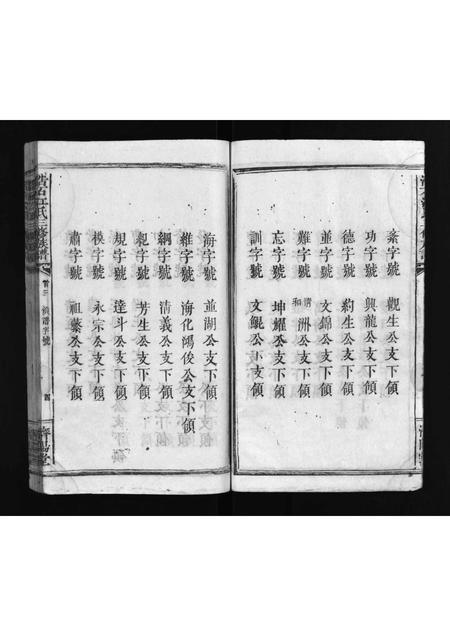 素字號 觀生公支下領
功字號 興龍公支下領
德字號 約生公支下領
並字號 文錦公支下領
難字號 清和洲公支下領
忘字號 坤耀公支下領
訓字號 文鯤公支下領
海字號 並湖公支下領
維字號 海化鴻俊公支下領
綱字號 清義公支下領
親字號 芳生公支下領
規字號 達斗公支下領
模字號 永宗公支下領
肅字號 祖蘂公支下領
首三 領譜字號 四
濟陽堂